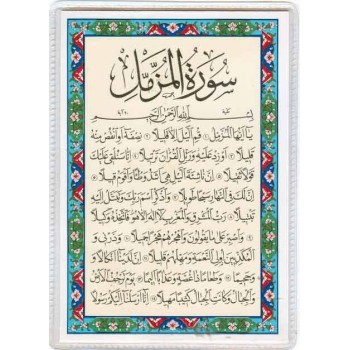 سورة المزمل
بسم الله الرحمن الرحيم
يا أيها المزمل قم الليل الا قليلا نصفه او انقص منه
قليلا او زد عليه ورتل القران ترتيلا انا سنلقي عليك
قولا ثقيلا ان ناشئة الليل هي اشد وطئا واقوم قيلا
ان لك في النهار سبحا طويلا واذكر اسم ربك وتبتل اليه
تبتيلا رب المشرق والمغرب لا اله الا هو فاتخذه وكيلا
واصبر على ما يقولون واهجرهم هجرا جميلا وذرني و
المكذبين اولي النعمة ومهلهم قليلا ان لدينا انكالا و
جحيما وطعاما ذا غصة وعذابا اليما يوم ترجف الارض
والجبال وكانت الجبال كثيبا مهيلا انا ارسلنا اليكم رسولا